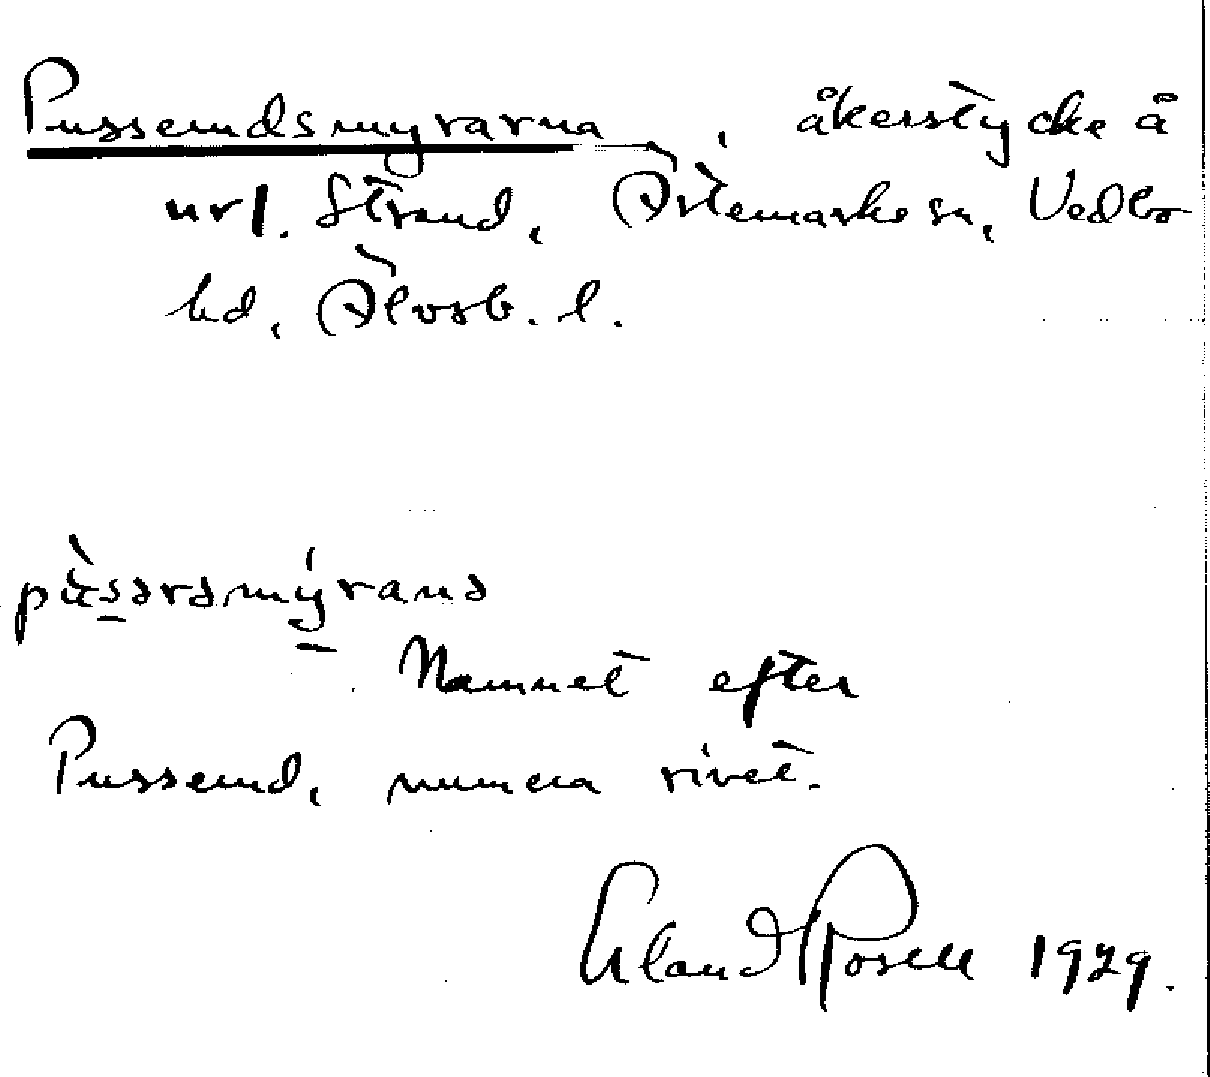 Pussemdsmyrarna, åkerstycke å
nr 1. Strand, Ärtemarks sn, Vedbo
hd, Älvsb. l.
pùsərsmýranə
Namnet efter
Pussemd, numera rivet.
Erland Rosell 1929.